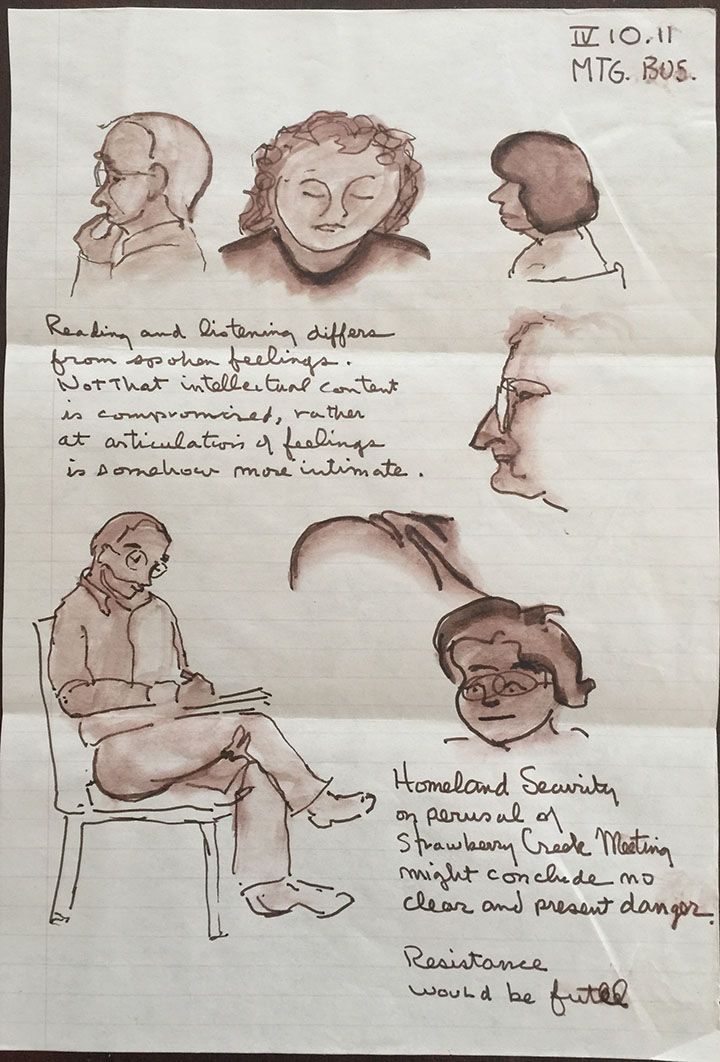 IV 10.11
MTG. BUS.
Reading and listening differs
from spoken feelings.
Not that intellectual content
is compromised, rather
at articulation of feelings
is somehow more intimate.
Homeland Security
on perusal of
Strawberry Creek Meeting
might conclude no
clear and present danger.
Resistance
would be futile